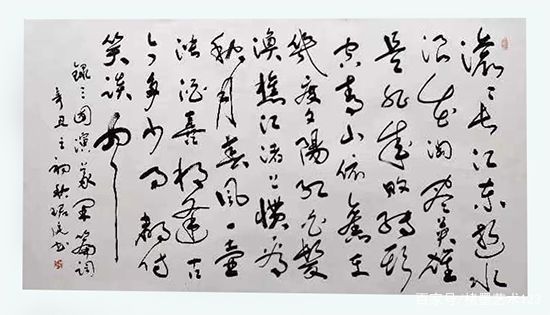 滚滚长江东逝水
浪花淘尽英雄
是非成败转头
空青山依旧在
几度夕阳红白发
渔樵江渚上惯看
秋月春风一壶
浊酒喜相逢古
今多少事都付
笑谈中
录三国演义开篇词
辛丑之初秋书
百家号